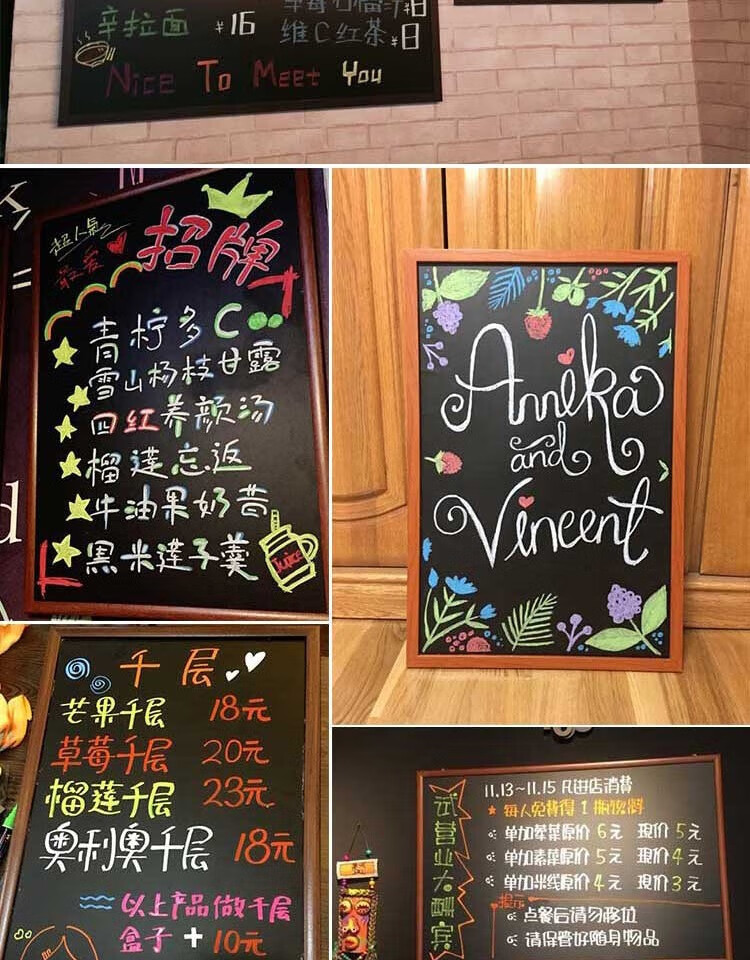 辛拉面 ¥16
维C红茶 ¥8
Nice To Meet You
超人氣
最爱
招牌
青柠多C
雪山杨枝甘露
四红养颜汤
榴莲忘返
牛油果奶昔
黑米莲子羹
Juice
Annika
and
Vincent
千层
芒果千层 18元
草莓千层 20元
榴莲千层 23元
奥利奥千层 18元
以上产品做千层
盒子+10元
试营业大酬宾
11.13~11.15 凡进店消费
每人免费得1瓶饮料
单加荤菜原价6元 现价5元
单加素菜原价5元 现价4元
单加米线原价4元 现价3元
提示
点餐后请勿移位
请保管好随身物品